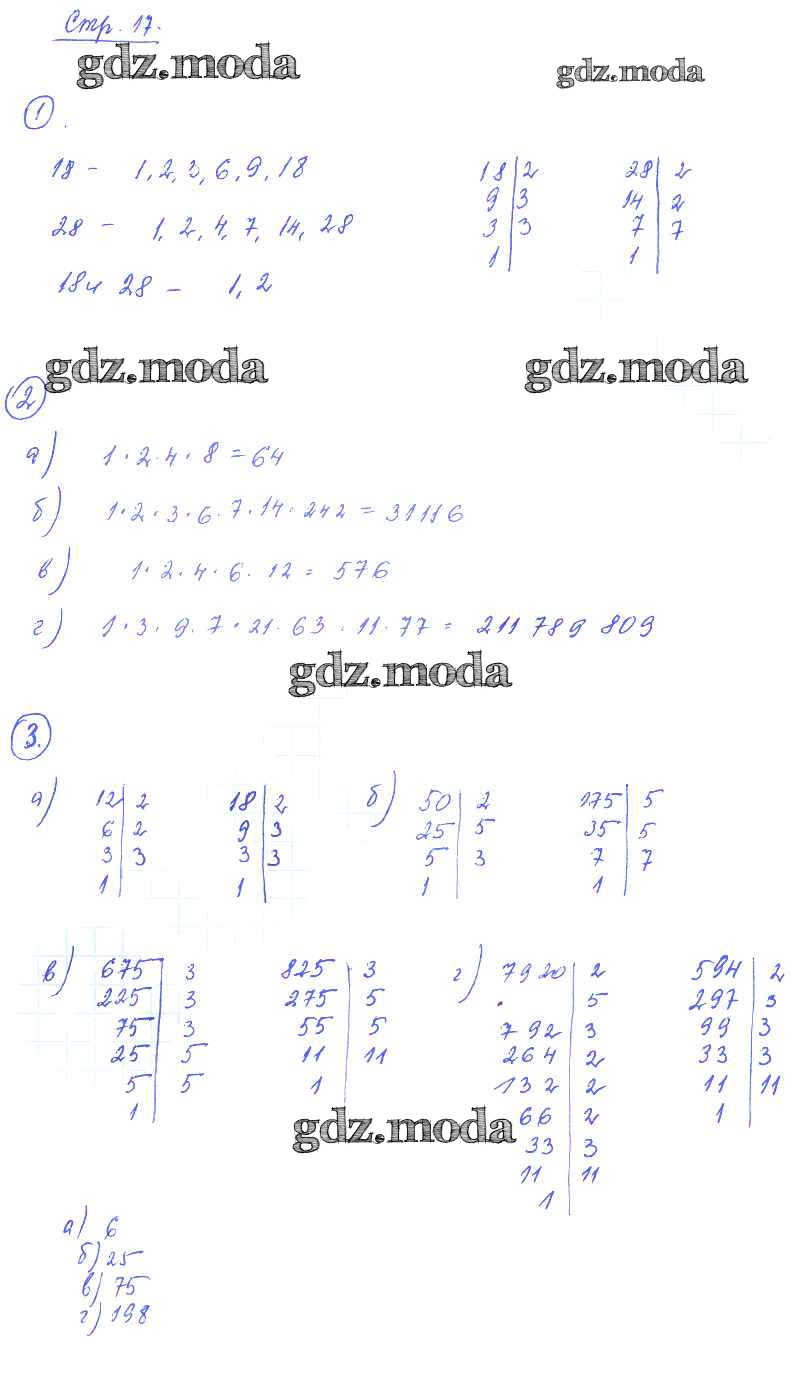 Стр. 17.
gdz.moda gdz.moda
1.
18 - 1, 2, 3, 6, 9, 18
28 - 1, 2, 4, 7, 14, 28
18 и 28 - 1, 2
18 | 2 28 | 2
9 | 3 14 | 2
3 | 3 7 | 7
1 | 1 |
gdz.moda gdz.moda
2
а) 1·2·4·8 = 64
б) 1·2·3·6·7·14·242 = 31116
в) 1·2·4·6·12 = 576
г) 1·3·9·7·21·63·11·77 = 211 789 809
gdz.moda
3.
а) 12 | 2 18 | 2
6 | 2 9 | 3
3 | 3 3 | 3
1 | 1 |
б) 50 | 2 175 | 5
25 | 5 35 | 5
5 | 3 7 | 7
1 | 1 |
в) 675 | 3 825 | 3
225 | 3 275 | 5
75 | 3 55 | 5
25 | 5 11 | 11
5 | 5 1 |
1 |
г) 7920 | 2 594 | 2
. | 5 297 | 3
792 | 3 99 | 3
264 | 2 33 | 3
132 | 2 11 | 11
66 | 2 1 |
33 | 3
11 | 11
1 |
gdz.moda
а) 6
б) 25
в) 75
г) 198